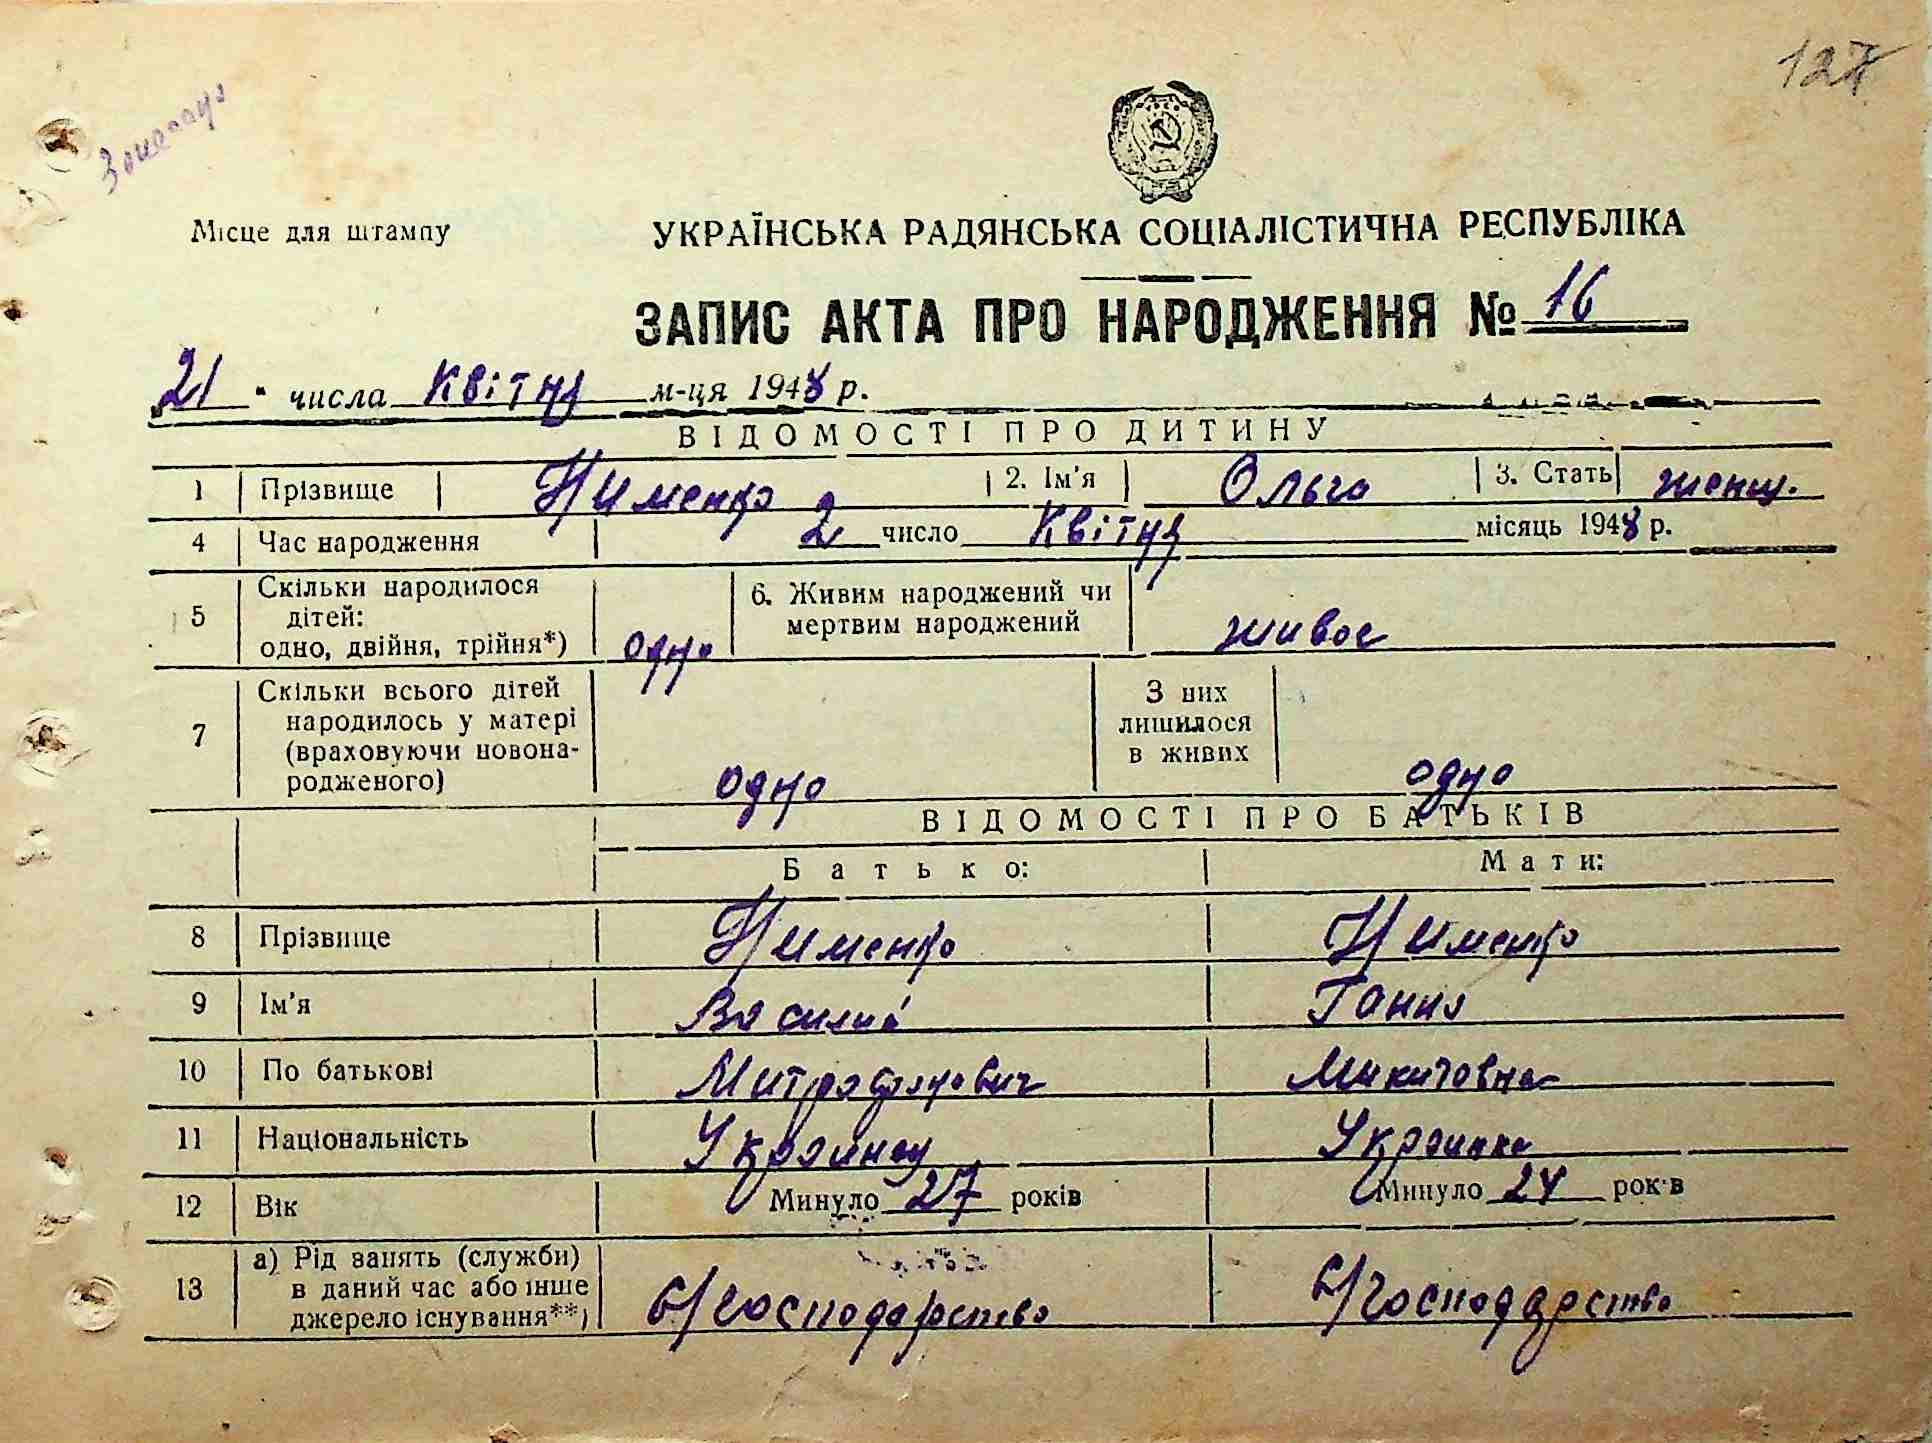 127
Місце для штампу
УКРАЇНСЬКА РАДЯНСЬКА СОЦІАЛІСТИЧНА РЕСПУБЛІКА
ЗАПИС АКТА ПРО НАРОДЖЕННЯ № 16
21 числа Квітня м-ця 1948 р.
ВІДОМОСТІ ПРО ДИТИНУ
1 Прізвище Нименко 2. Ім'я Ольга 3. Стать женш.
4 Час народження 2 число Квітня місяць 1948 р.
5 Скільки народилося дітей: одно, двійня, трійня*) одно 6. Живим народжений чи мертвим народжений живое
7 Скільки всього дітей народилось у матері (враховуючи новонародженого) одно З них лишилося в живих одно
ВІДОМОСТІ ПРО БАТЬКІВ
Батько: Мати:
8 Прізвище Нименко Нименко
9 Ім'я Василий Ганна
10 По батькові Митрофанович Микитовна
11 Національність Украинец Украинка
12 Вік Минуло 27 років Минуло 24 років
13 а) Рід занять (служби) в даний час або інше джерело існування**) с/господарство с/господарство